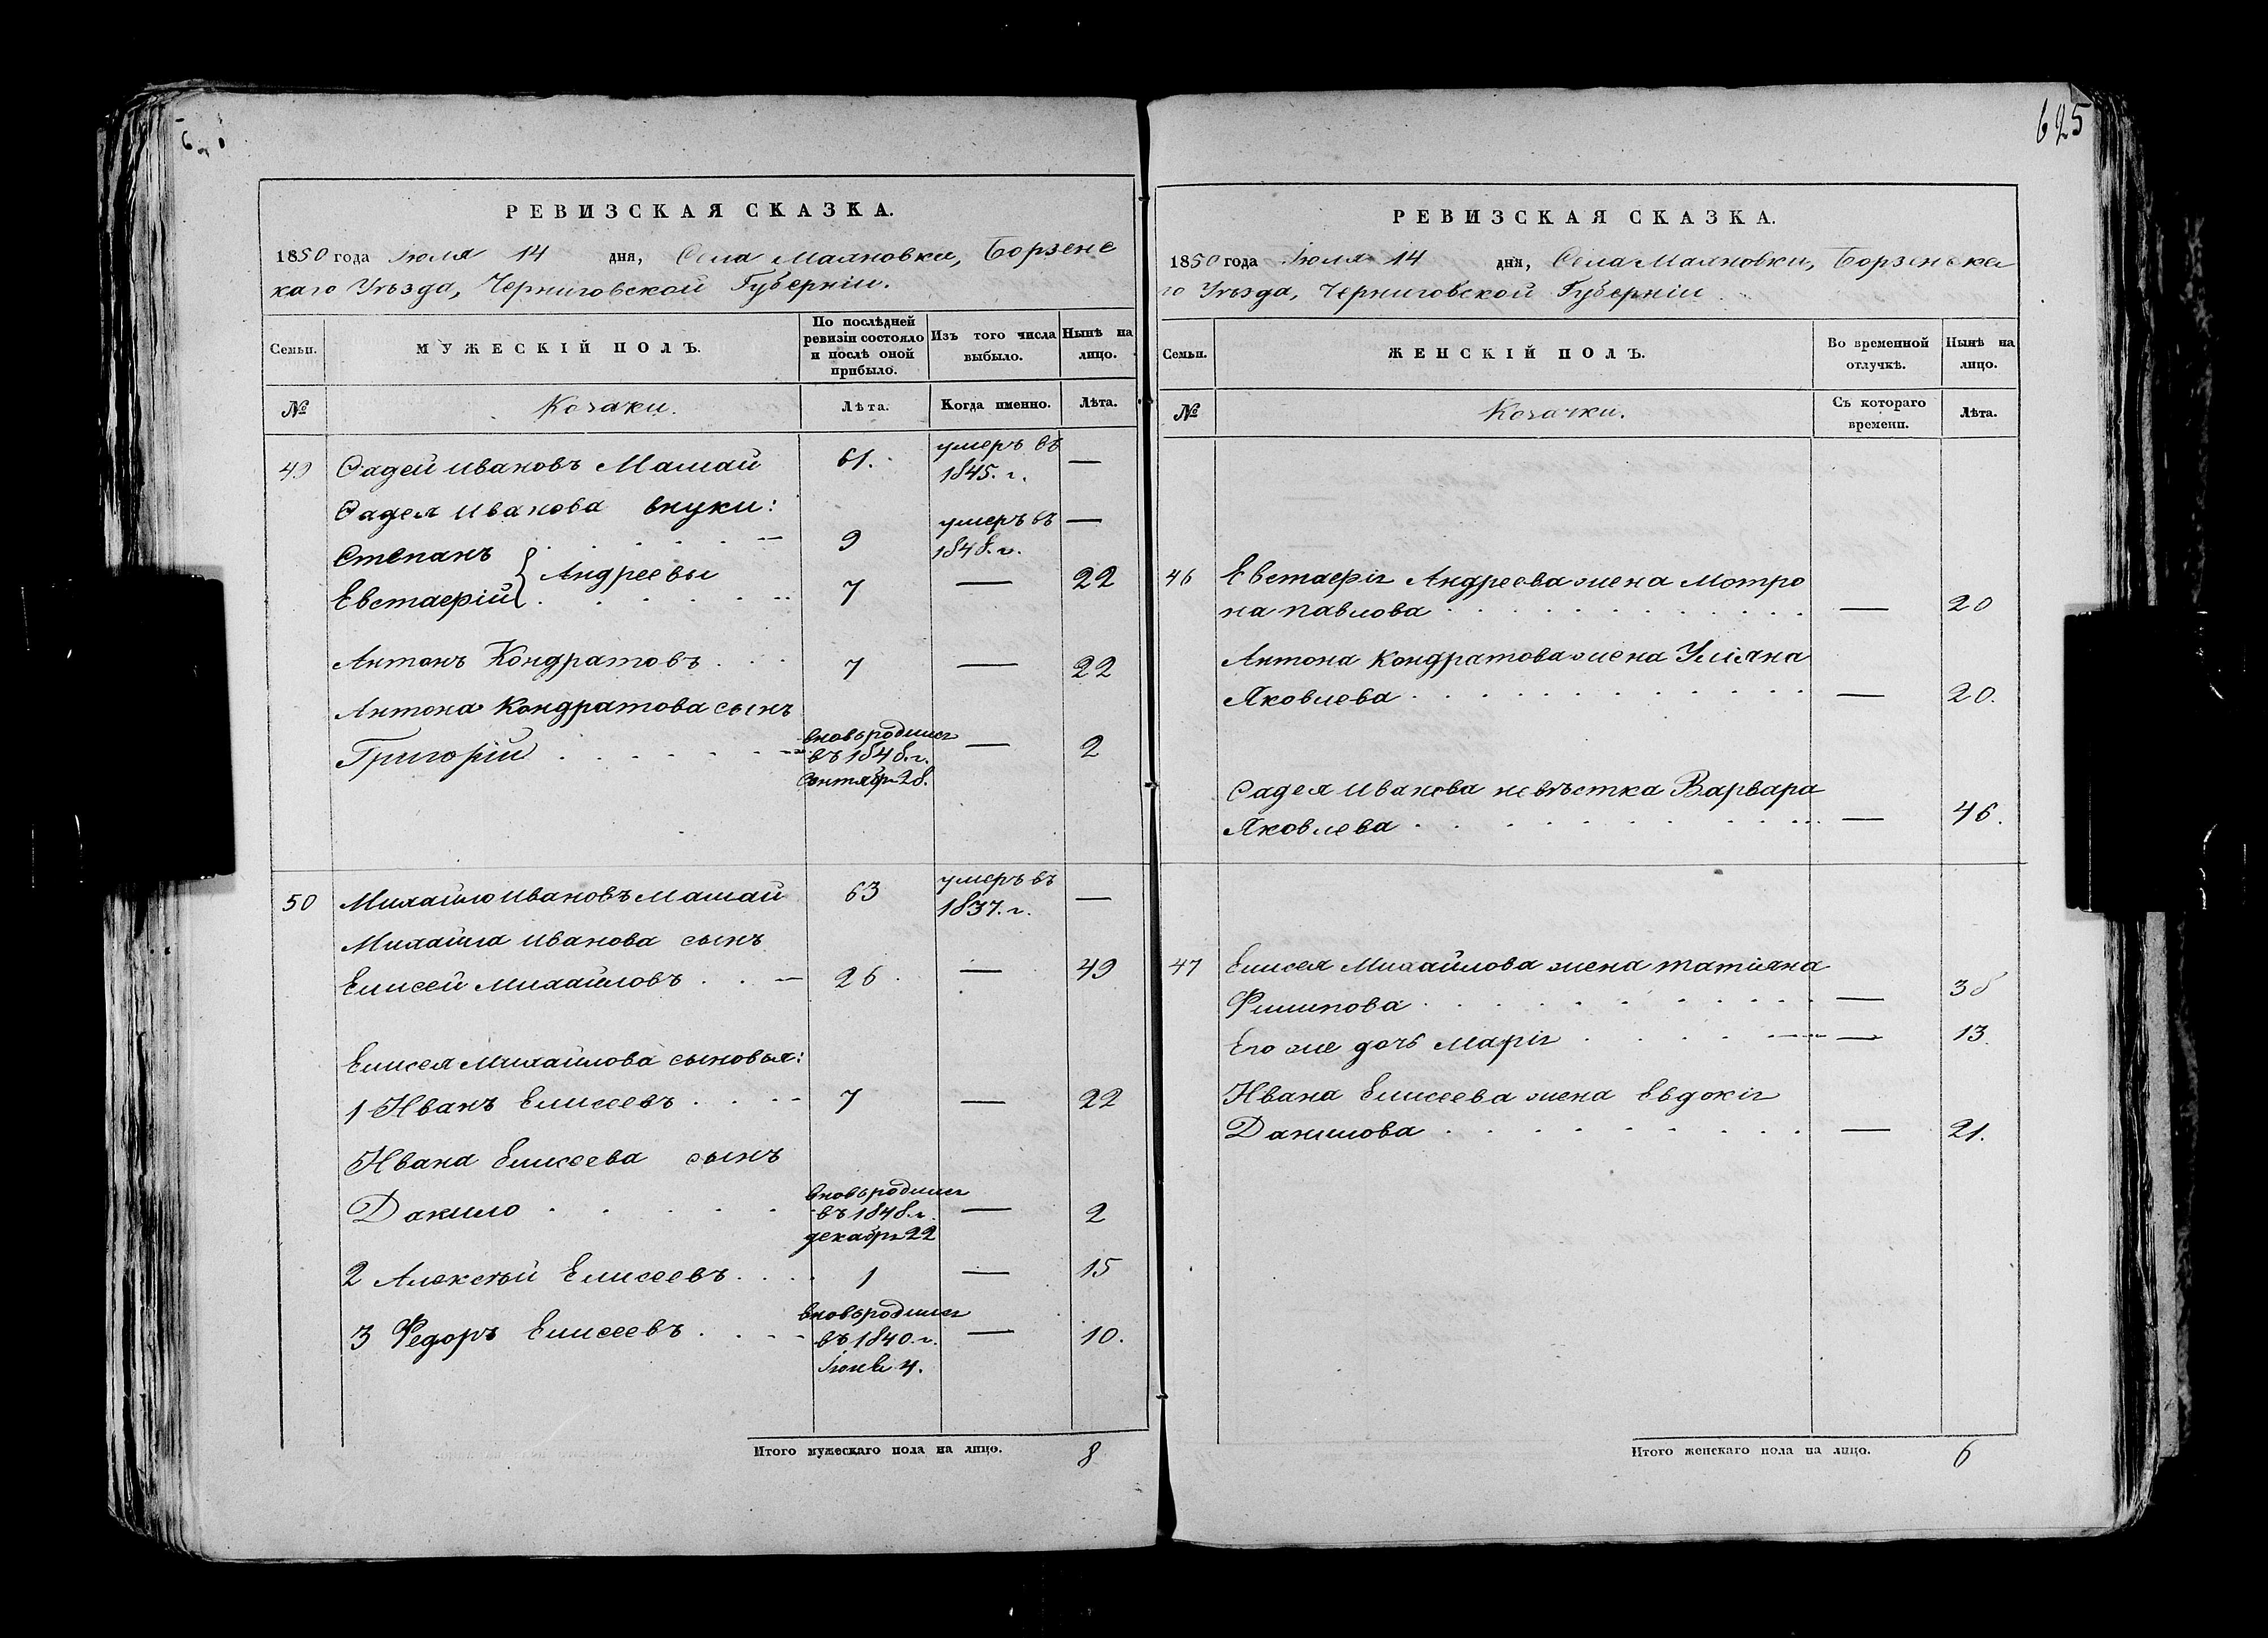 625
РЕВИЗСКАЯ СКАЗКА.
1850 года Іюля 14 дня, Села Маляновки, Борзенс
каго Уѣзда, Черниговской Губерніи.
Семьи.
МУЖЕСКІЙ ПОЛЪ.
По послѣдней
ревизіи состояло
и послѣ оной
прибыло.
Изъ того числа
выбыло.
Нынѣ на
лицо.
№
Козаки.
Лѣта.
Когда именно.
Лѣта.
49 Фадей Ивановъ Мамай 61. умеръ въ —
1845. г.
Фадея Иванова внуки:
Степанъ 9 умеръ въ —
1848. г.
Андреевы
Евстафій 7 — 22
Антонъ Кондратовъ 7 — 22
Антона Кондратова сынъ
Григорій вновь родился — 2
въ 1848. г.
Сентября 28.
50 Михайло Ивановъ Мамай 63 умеръ въ —
1837. г.
Михайла Иванова сынъ
Елисей Михайловъ 26 — 49
Елисея Михайлова сыновья:
1 Иванъ Елисеевъ 7 — 22
Ивана Елисеева сынъ
Данило вновь родился — 2
въ 1848. г.
декабря 22
2 Алексѣй Елисеевъ 1 — 15
3 Федоръ Елисеевъ вновь родился — 10.
въ 1840. г.
Іюня 4.
Итого мужескаго пола на лицо. 8
РЕВИЗСКАЯ СКАЗКА.
1850 года Іюля 14 дня, Села Маляновки, Борзенска
го Уѣзда, Черниговской Губерніи
Семьи.
ЖЕНСКІЙ ПОЛЪ.
Во временной
отлучкѣ.
Нынѣ на
лицо.
№
Козачки.
Съ котораго
времени.
Лѣта.
46 Евстафія Андреева жена Мотро
на Павлова — 20
Антона Кондратова жена Уліяна
Яковлева — 20.
Фадея Иванова невѣстка Варвара
Яковлева — 46.
47 Елисея Михайлова жена Татіяна
Филипова — 38
Его же дочь Марія — 13
Ивана Елисеева жена Евдокія
Данилова — 21.
Итого женскаго пола на лицо. 6